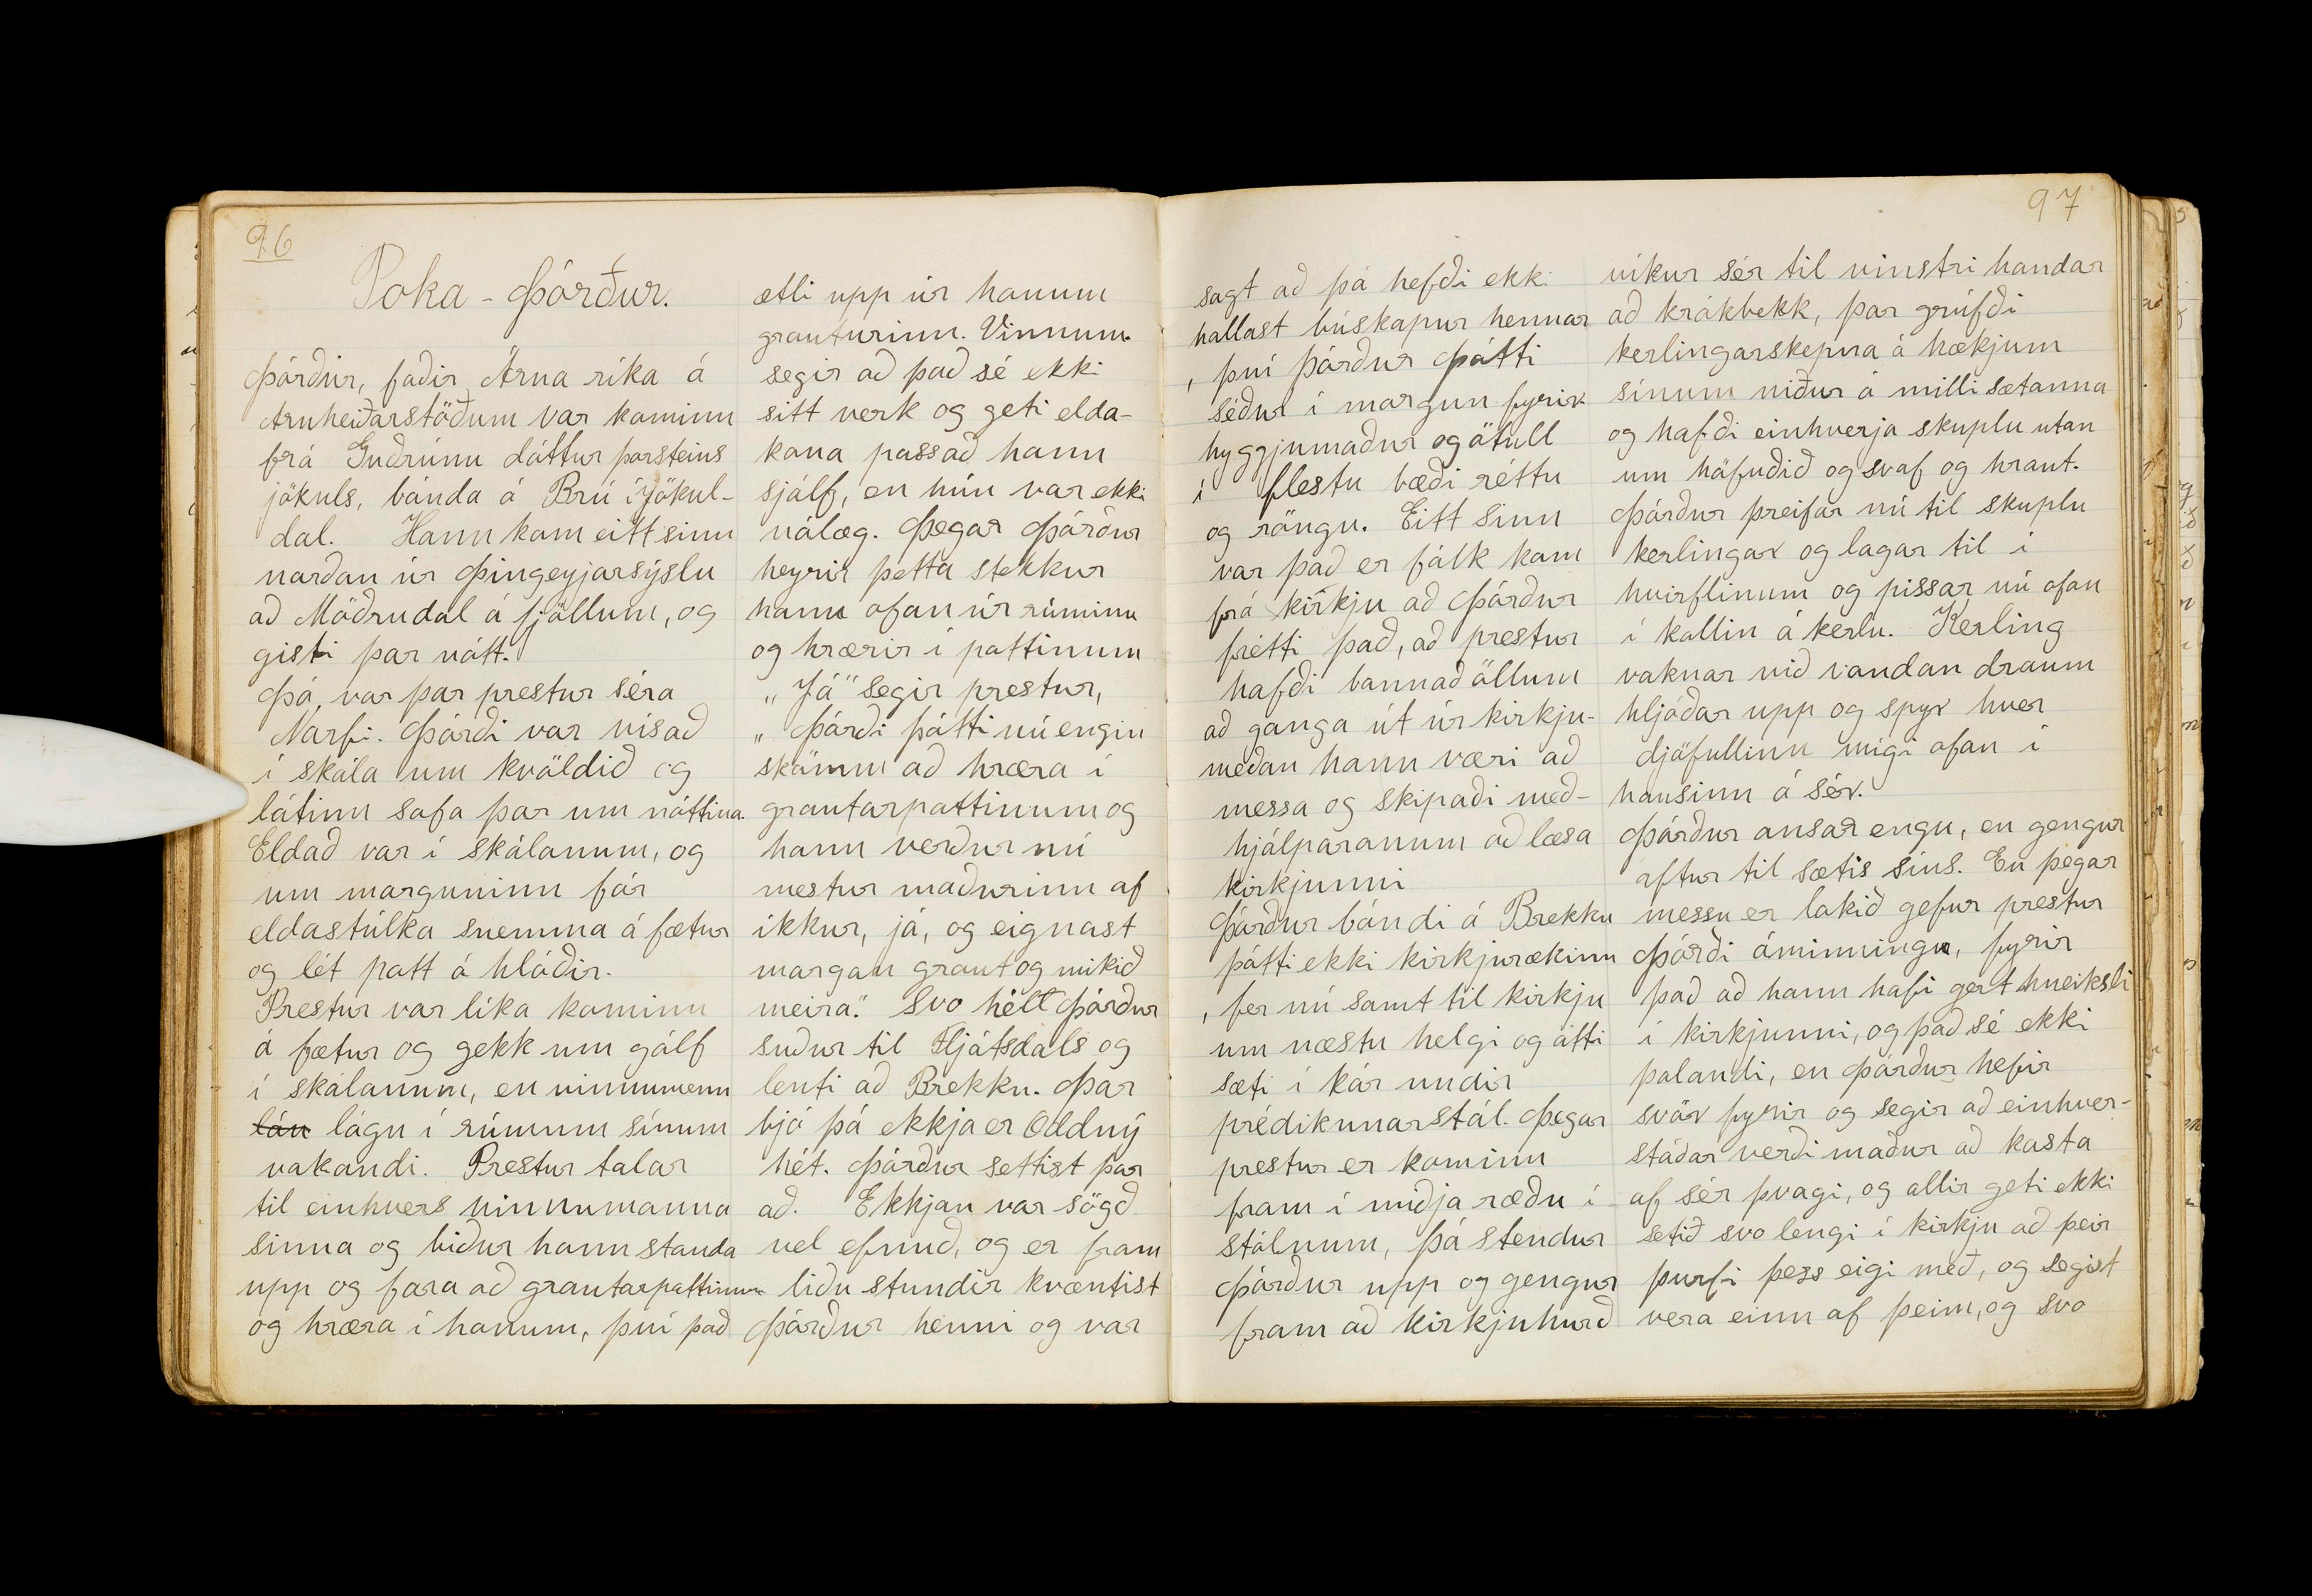 96
Poka-Þórður.
Þórður, faðir Árna ríka á
Arnheiðarstöðum var kominn
frá Guðrúnu dóttur þorsteins
jökuls, bónda á Brú í Jökul-
dal. Hann kom eitt sinn
norðan úr Þingeyjarsýslu
að Möðrudal á fjöllum, og
gisti þar nótt.
Þá, var þar prestur séra
Narfi. Þórði var vísað
í skála um kvöldið og
látinn sofa þar um nóttina.
Eldað var í skálanum, og
um morguninn fór
eldastúlka snemma á fætur
og lét pott á hlóðir.
Prestur var líka kominn
á fætur og gekk um gólf
í skálanum, en vinnumenn
lán lágu í rúmum sínum
vakandi. Prestur talar
til einhvers vinnumanna
sinna og biður hann standa
upp og fara að grautarpottinum
og hræra í honum, því það
ætli upp úr honum
grauturinn. Vinnum.
segir að það sé ekki
sitt verk og geti elda-
kona passað hann
sjálf, en hún var ekki
nálæg. Þegar Þórður
heyrir þetta stekkur
hann ofan úr rúminu
og hrærir í pottinum
„Já" segir prestur,
„Þórði þótti nú engin
skömm að hræra í
grautarpottinum og
hann verður nú
mestur maðurinn af
ikkur, já, og eignast
margan graut og mikið
meira." Svo hélt Þórður
suður til Fljótsdals og
lenti að Brekku. Þar
bjó þá ekkja er Oddný
hét. Þórður settist þar
að. Ekkjan var sögð
vel efnuð, og er fram
liðu stundir kvæntist
Þórður henni og var
97
sagt að þá hefði ekki
hallast búskapur hennar
, því Þórður þótti
séður í morgun fyrir
hyggjumaður og ötull
í flestu bæði réttu
og röngu. Eitt sinn
var það er fólk kom
frá kirkju að Þórður
frétti það, að prestur
hafði bannað öllum
að ganga út úr kirkju-
meðan hann væri að
messa og skipaði með-
hjálparanum að læsa
kirkjunni
Þórður bóndi á Brekku
þótti ekki kirkjurækinn
, fer nú samt til kirkju
um næstu helgi og átti
sæti í kór undir
prédikunarstól. Þegar
prestur er kominn
fram í miðja ræðu í
stólnum, þá stendur
Þórður upp og gengur
fram að kirkjuhurð
víkur sér til vinstri handar
að krókbekk, þar grúfði
kerlingarskepna á hækjum
sínum niður á milli sætanna
og hafði einhverja skuplu utan
um höfuðið og svaf og hraut.
Þórður þreifar nú til skuplu
kerlingar og lagar til í
hvirflinum og pissar nú ofan
í kollin á kerlu. Kerling
vaknar við vondan draum
hljóðar upp og spyr hver
djöfullinn mígi ofan í
hausinn á sér.
Þórður ansar engu, en gengur
aftur til sætis síns. En þegar
messu er lokið gefur prestur
Þórði áminningu, fyrir
það að hann hafi gert hneiksli
í kirkjunni, og það sé ekki
þolandi, en Þórður hefir
svör fyrir og segir að einhver-
stáðar verði maður að kasta
af sér þvagi, og allir geti ekki
setið svo lengi í kirkju að þeir
þurfi þess eigi með, og segist
vera einn af þeim, og svo